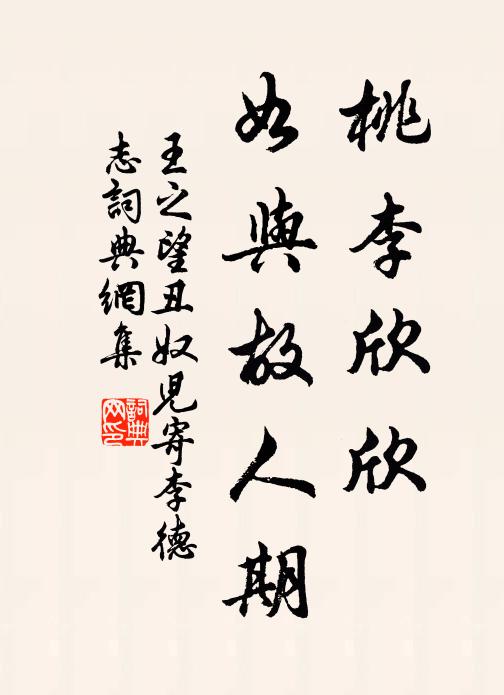 桃李欣欣
如與故人期
王之望丑奴児寄李德
志詞典網集
詞典网印